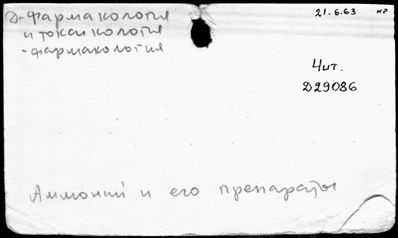 Д-фармакология
и токсикология
-фармакология
21.6.63 нр
Чит.
D29086
Аммоний и его препараты